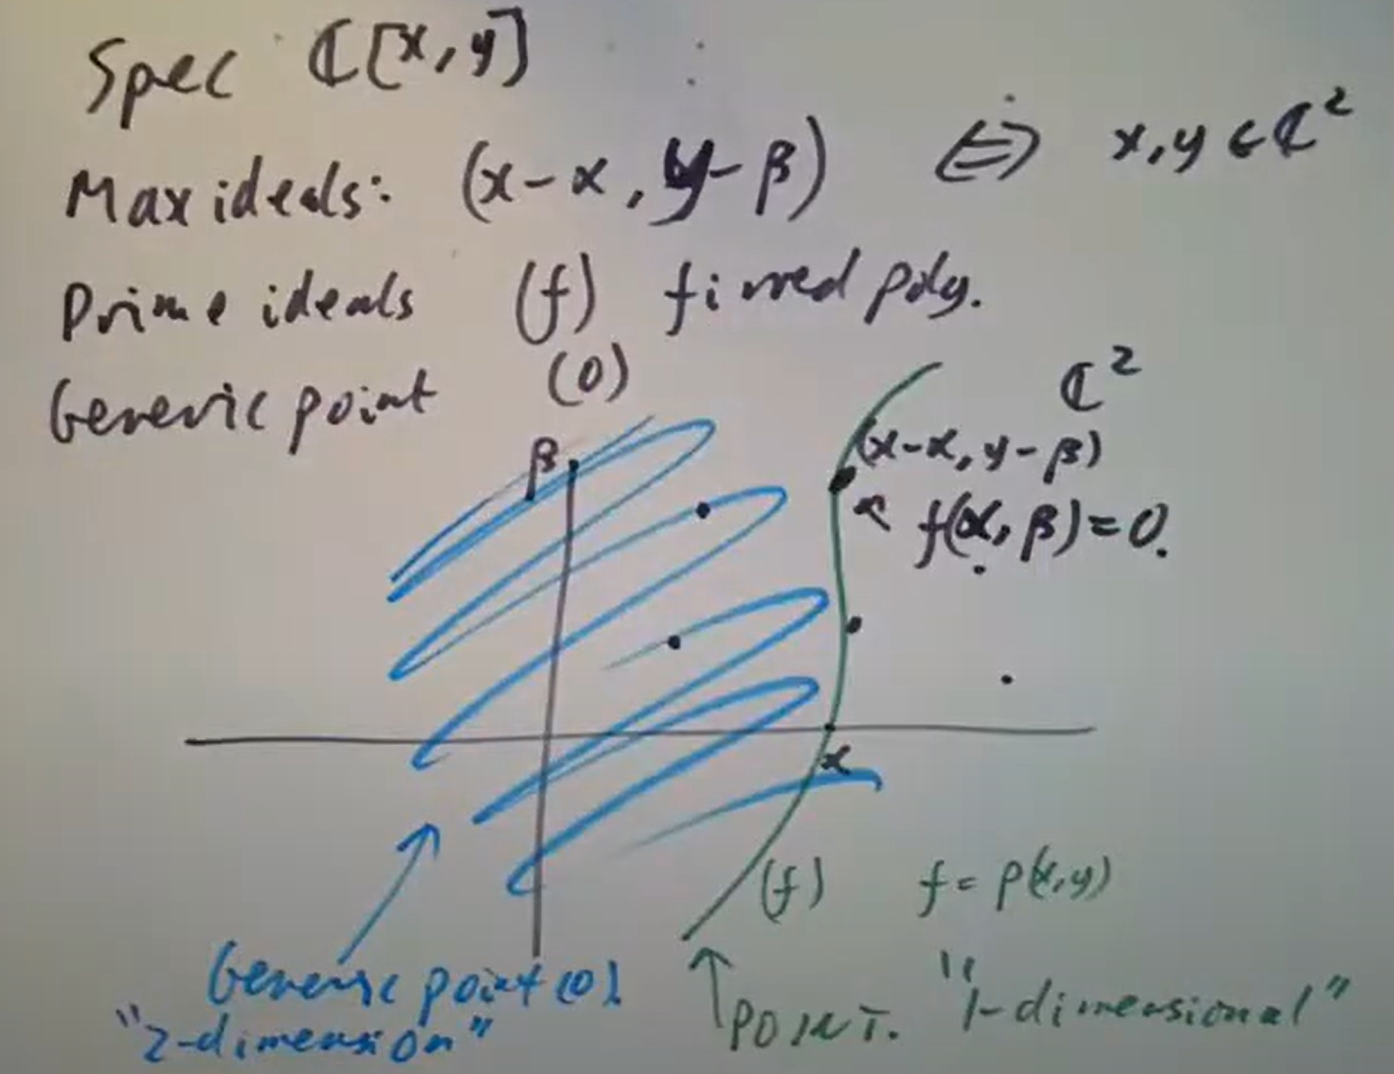 Spec ℂ[x,y]
Max ideals: (x-α, y-β) ⇔ x,y ∈ ℂ²
Prime ideals (f) f irred poly.
Generic point (0)
ℂ²
β
(x-α, y-β)
f(α, β)=0.
α
(f) f = p(x,y)
Generic point (0).
"2-dimension"
POINT. "1-dimensional"